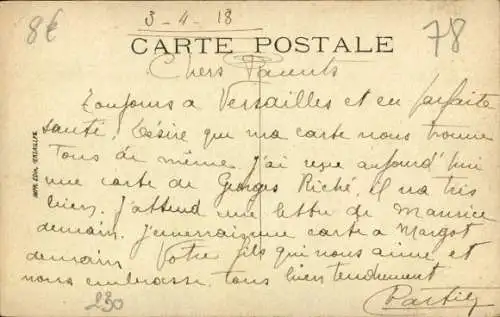 8€
3-4-18
78
CARTE POSTALE
Chers Parents
Toujours a Versailles et en parfaite
santé. Désire que ma carte nous trouve
Tous de même. J'ai reçue aujourd'hui
une carte de Georges Riché. il va très
bien. J'attend une lettre de Maurice
demain. J'enverrai une carte a Margot
demain Votre fils qui nous aime et
nous embrasse tous bien tendrement
230